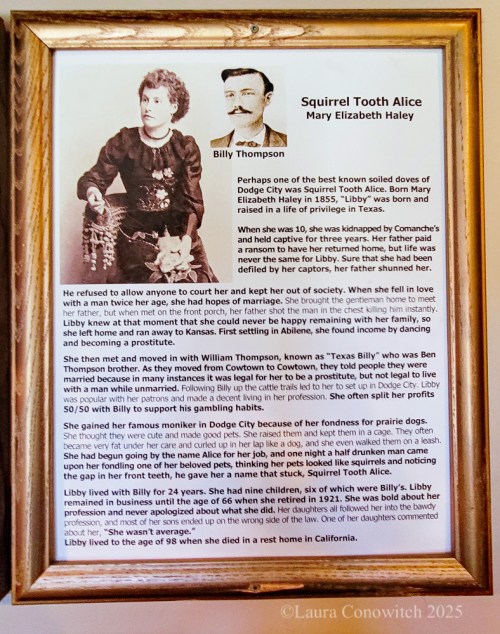 Squirrel Tooth Alice
Mary Elizabeth Haley
Billy Thompson
Perhaps one of the best known soiled doves of
Dodge City was Squirrel Tooth Alice. Born Mary
Elizabeth Haley in 1855, "Libby" was born and
raised in a life of privilege in Texas.
When she was 10, she was kidnapped by Comanche's
and held captive for three years. Her father paid
a ransom to have her returned home, but life was
never the same for Libby. Sure that she had been
defiled by her captors, her father shunned her.
He refused to allow anyone to court her and kept her out of society. When she fell in love
with a man twice her age, she had hopes of marriage. She brought the gentleman home to meet
her father, but when met on the front porch, her father shot the man in the chest killing him instantly.
Libby knew at that moment that she could never be happy remaining with her family, so
she left home and ran away to Kansas. First settling in Abilene, she found income by dancing
and becoming a prostitute.
She then met and moved in with William Thompson, known as "Texas Billy" who was Ben
Thompson brother. As they moved from Cowtown to Cowtown, they told people they were
married because in many instances it was legal for her to be a prostitute, but not legal to live
with a man while unmarried. Following Billy up the cattle trails led to her to set up in Dodge City. Libby
was popular with her patrons and made a decent living in her profession. She often split her profits
50/50 with Billy to support his gambling habits.
She gained her famous moniker in Dodge City because of her fondness for prairie dogs.
She thought they were cute and made good pets. She raised them and kept them in a cage. They often
became very fat under her care and curled up in her lap like a dog, and she even walked them on a leash.
She had begun going by the name Alice for her job, and one night a half drunken man came
upon her fondling one of her beloved pets, thinking her pets looked like squirrels and noticing
the gap in her front teeth, he gave her a name that stuck, Squirrel Tooth Alice.
Libby lived with Billy for 24 years. She had nine children, six of which were Billy's. Libby
remained in business until the age of 66 when she retired in 1921. She was bold about her
profession and never apologized about what she did. Her daughters all followed her into the bawdy
profession, and most of her sons ended up on the wrong side of the law. One of her daughters commented
about her, "She wasn't average."
Libby lived to the age of 98 when she died in a rest home in California.
©Laura Conowitch 2025